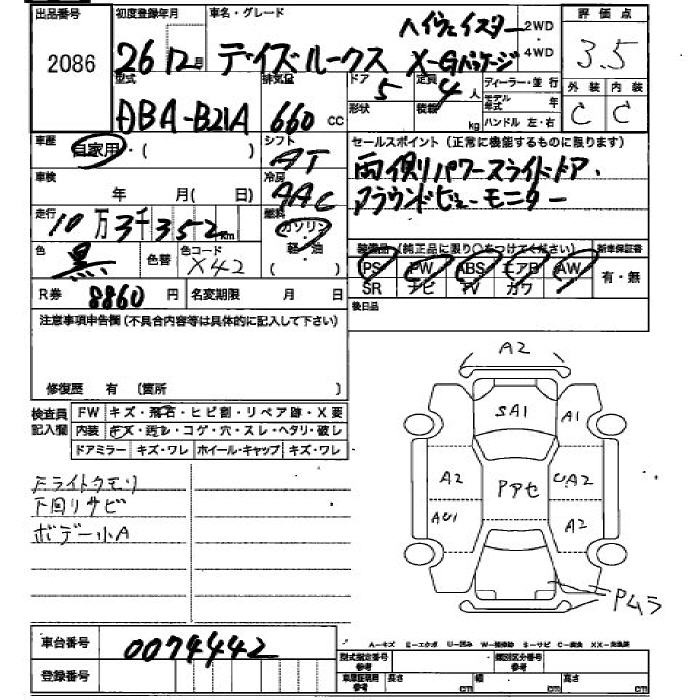 出品番号 初度登録年月 車名・グレード 評価点
2086 26 12月 デイズルークス ハイウェイスター X-Gパッケージ 2WD ・ 4WD 3.5
型式 排気量 ドア 定員 ディーラー・並行 外装 内装
DBA-B21A 660 CC 5 4人 形状 積載 kg モデル年式 年 ハンドル 左・右 C C
車歴 自家用・( ) シフト AT セールスポイント(正常に機能するものに限ります)
車検 年 月( 日) 冷房 AAC 両側パワースライドドア・
走行 10万3千352Km 燃料 ガソリン・軽・油 ( ) アラウンドビューモニター
色 黒 色替 色コード X42 装備品(純正品に限り○をつけてください) 新車保証書
PS PW ABS エアB AW 有・無
SR ナビ TV カワ
R券 8860円 名変期限 月 日 後日品
注意事項申告欄(不具合内容等は具体的に記入して下さい)
修復歴 有 (箇所 )
検査員記入欄 FW キズ・飛石・ヒビ割・リペア跡・X要
内装 キズ・汚レ・コゲ・穴・スレ・ヘタリ・破レ
ドアミラー キズ・ワレ ホイール・キャップ キズ・ワレ
下回りサビ
ボデー小A
A2
SA1 A1
A2 Pアセ UA2
AU1 A2
Pムラ
車台番号 0074442
A-キズ E-エクボ U-凹み W-補修跡 S-サビ C-腐食 XX-交換済
登録番号 型式指定番号参考 類別区分番号参考
車庫証明用参考 長さ cm 幅 cm 高さ cm